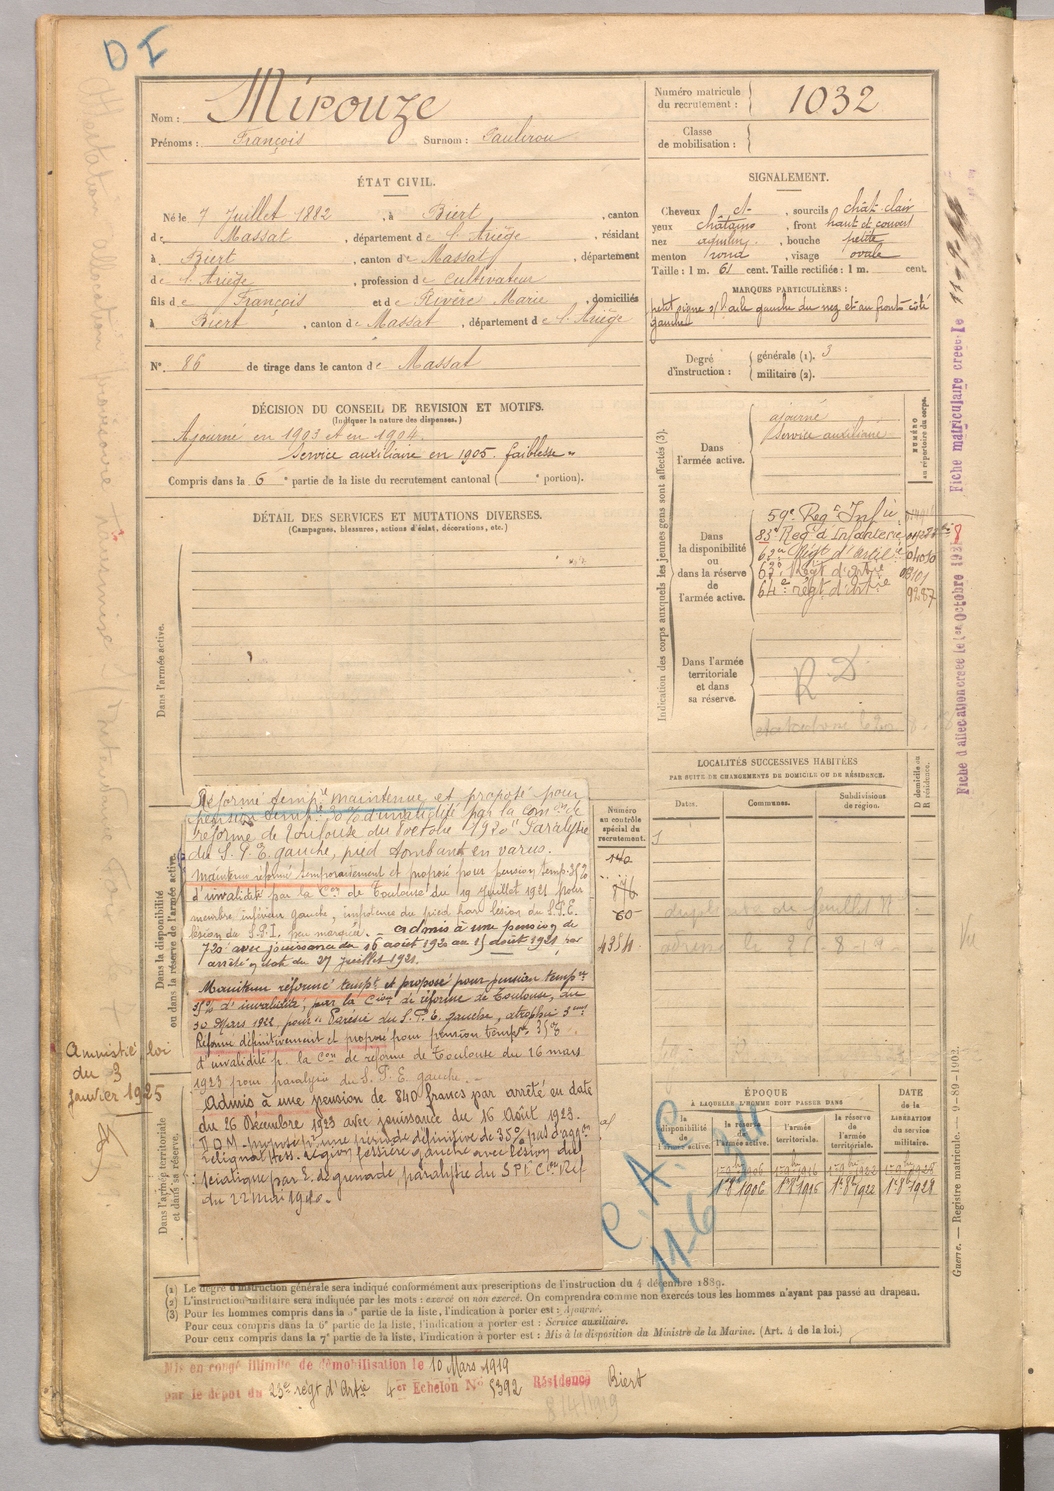 D I
Nom : Mirouze
Prénoms : François Surnom : Paulirou
Numéro matricule du recrutement : 1032
Classe de mobilisation :
ÉTAT CIVIL.
Né le 7 Juillet 1882, à Biert, canton
de Massat, département de l'Ariège, résidant
à Biert, canton de Massat, département
de l'Ariège, profession de cultivateur
fils de François et de Rivère Marie, domiciliés
à Biert, canton de Massat, département de l'Ariège
N° 86 de tirage dans le canton de Massat
SIGNALEMENT.
Cheveux ct, sourcils chât. clair
yeux châtains, front haut et couvert
nez aquilin, bouche petite
menton rond, visage ovale
Taille : 1 m. 61 cent. Taille rectifiée : 1 m. cent.
MARQUES PARTICULIÈRES :
petit signe s/ l'aile gauche du nez et au front côté
gauche
Degré d'instruction : générale (1). 3
militaire (2).
DÉCISION DU CONSEIL DE REVISION ET MOTIFS.
(Indiquer la nature des dispenses.)
Ajourné en 1903 et en 1904.
Service auxiliaire en 1905. faiblesse
Compris dans la 6e partie de la liste du recrutement cantonal ( e portion).
DÉTAIL DES SERVICES ET MUTATIONS DIVERSES.
(Campagnes, blessures, actions d'éclat, décorations, etc.)
Indication des corps auxquels les jeunes gens sont affectés (3).
NUMÉRO au répertoire du corps.
Dans l'armée active.
ajourné
Service auxiliaire
Dans la disponibilité ou dans la réserve de l'armée active.
59e Regt Infie
83e Regt d'Infanterie
63e Régt d'artie 04050
63e Régt d'artie 03101
64e régt d'artie 9287
Dans l'armée territoriale et dans sa réserve.
R D
LOCALITÉS SUCCESSIVES HABITÉES
PAR SUITE DE CHANGEMENTS DE DOMICILE OU DE RÉSIDENCE.
Dates. Communes. Subdivisions de région. D domicile ou R résidence.
Numéro au contrôle spécial du recrutement.
140
876
60
4354
Dans l'armée active.
Dans la disponibilité ou dans la réserve de l'armée active.
Dans l'armée territoriale et dans sa réserve.
Réformé tempre maintenue et proposé pour
pension temp. 30% d'invalidité par la Comon de
réforme de Toulouse du 8 octobre 1920 "Paralysie
du S. P. E. gauche, pied tombant en varus.
Maintenu réformé temporairement et proposé pour pension temp. 35%
d'invalidité par la Con de Toulouse du 19 juillet 1921 pour
membre inférieur gauche, impotence du pied par lésion du S.P.E.
lésion du S.P.I. peu marquée. - admis à une pension de
720f avec jouissance du 16 août 1920 au 15 août 1921 par
arrêté en dat du 27 juillet 1921.
Maintenu réformé tempt et proposé pour pension tempre
35% d'invalidité, par la Cion de réforme de Toulouse, du
30 Mars 1922, pour Parésie du S.P.E. gauche, atrophie
Réformé définitivement et proposé pour pension tempre 35%
d'invalidité p. la Con de réforme de Toulouse du 16 mars
1923 pour paralysie du S.P.E. gauche. -
Admis à une pension de 840 francs par arrêté en date
du 26 Décembre 1923 avec jouissance du 16 Août 1923.
définitive de 35% pas d'aggr.
région fessière gauche avec lésion du
sciatique par E. de grenade, paralysie du S P E Con Réf
du 22 mai 1926.
Amnistié loi
du 3
janvier 1925
ÉPOQUE
À LAQUELLE L'HOMME DOIT PASSER DANS
la disponibilité de l'armée active. la réserve de l'armée active. l'armée territoriale. la réserve de l'armée territoriale.
DATE de la LIBÉRATION du service militaire.
1er 8bre 1906 1er 8bre 1916 1er 8bre 1922 1er 8bre 1928
C. A. C
11-6-34
Fiche matriculaire créée le
Fiche d'allocation créée le 1er Octobre 1938
Guerre. — Registre matricule. — 9-89-1902.
(1) Le degré d'instruction générale sera indiqué conformément aux prescriptions de l'instruction du 4 décembre 1889.
(2) L'instruction militaire sera indiquée par les mots : exercé ou non exercé. On comprendra comme non exercés tous les hommes n'ayant pas passé au drapeau.
(3) Pour les hommes compris dans la 5e partie de la liste, l'indication à porter est : Ajourné.
Pour ceux compris dans la 6e partie de la liste, l'indication à porter est : Service auxiliaire.
Pour ceux compris dans la 7e partie de la liste, l'indication à porter est : Mis à la disposition du Ministre de la Marine. (Art. 4 de la loi.)
Mis en congé illimité de démobilisation le 10 Mars 1919
par le dépôt du 23e régt d'Artie 4er Echelon N° 5392 Résidence Biert
8/4/1919